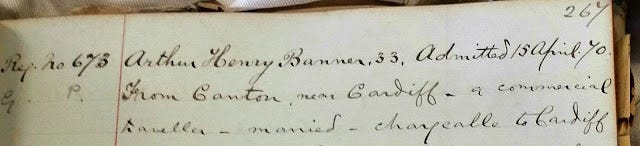 267
Reg. No 673 Arthur Henry Banner, 33, Admitted 15 April. 70.
G. P. From Canton, near Cardiff - a commercial
traveller - married - chargeable to Cardiff